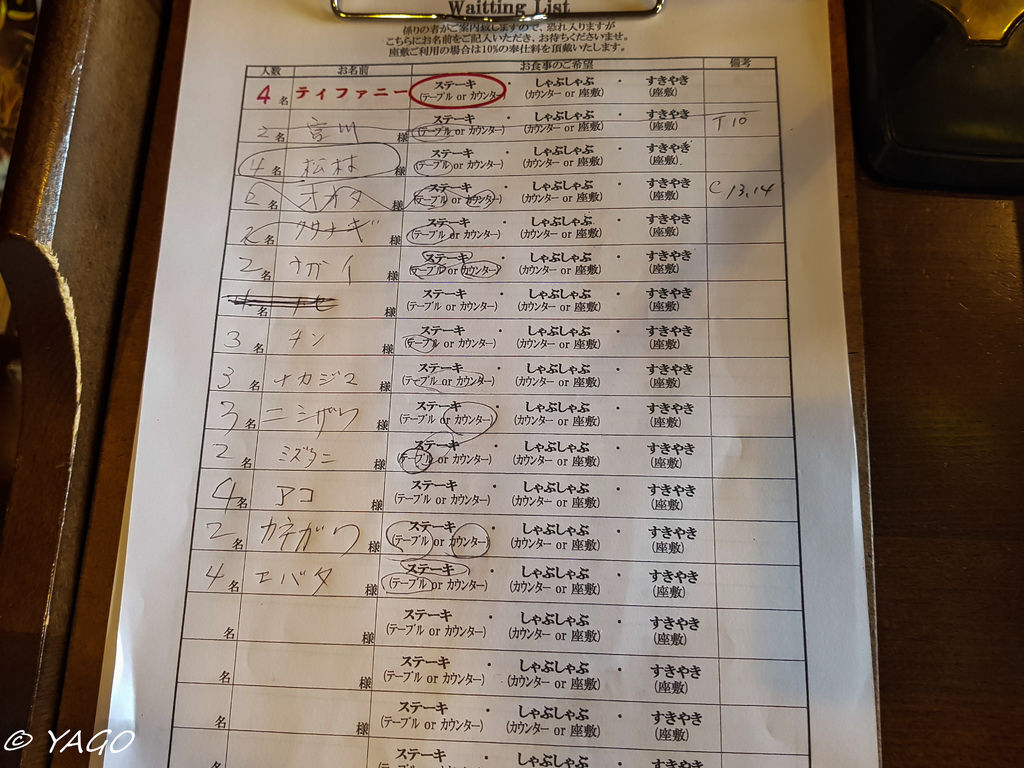 Waitting List
係りの者がご案内致しますので、恐れ入りますが
こちらにお名前をご記入いただき、お待ちくださいませ。
座敷ご利用の場合は10%の奉仕料を頂戴いたします。
人数 お名前 お食事のご希望 備考
4名 ティファニー ステーキ (テーブル or カウンター) ・ しゃぶしゃぶ (カウンター or 座敷) ・ すきやき (座敷)
2名 宮川 様 ステーキ (テーブル or カウンター) ・ しゃぶしゃぶ (カウンター or 座敷) ・ すきやき (座敷) T10
4名 松村 様 ステーキ (テーブル or カウンター) ・ しゃぶしゃぶ (カウンター or 座敷) ・ すきやき (座敷)
2名 オオタ 様 ステーキ (テーブル or カウンター) ・ しゃぶしゃぶ (カウンター or 座敷) ・ すきやき (座敷) C13,14
2名 クサナギ 様 ステーキ (テーブル or カウンター) ・ しゃぶしゃぶ (カウンター or 座敷) ・ すきやき (座敷)
2名 ナガイ 様 ステーキ (テーブル or カウンター) ・ しゃぶしゃぶ (カウンター or 座敷) ・ すきやき (座敷)
名 様 ステーキ (テーブル or カウンター) ・ しゃぶしゃぶ (カウンター or 座敷) ・ すきやき (座敷)
3名 チン 様 ステーキ (テーブル or カウンター) ・ しゃぶしゃぶ (カウンター or 座敷) ・ すきやき (座敷)
3名 ナカジマ 様 ステーキ (テーブル or カウンター) ・ しゃぶしゃぶ (カウンター or 座敷) ・ すきやき (座敷)
3名 ニシザワ 様 ステーキ (テーブル or カウンター) ・ しゃぶしゃぶ (カウンター or 座敷) ・ すきやき (座敷)
2名 ミズタニ 様 ステーキ (テーブル or カウンター) ・ しゃぶしゃぶ (カウンター or 座敷) ・ すきやき (座敷)
4名 アコ 様 ステーキ (テーブル or カウンター) ・ しゃぶしゃぶ (カウンター or 座敷) ・ すきやき (座敷)
2名 カネガワ 様 ステーキ (テーブル or カウンター) ・ しゃぶしゃぶ (カウンター or 座敷) ・ すきやき (座敷)
4名 エバタ 様 ステーキ (テーブル or カウンター) ・ しゃぶしゃぶ (カウンター or 座敷) ・ すきやき (座敷)
名 様 ステーキ (テーブル or カウンター) ・ しゃぶしゃぶ (カウンター or 座敷) ・ すきやき (座敷)
名 様 ステーキ (テーブル or カウンター) ・ しゃぶしゃぶ (カウンター or 座敷) ・ すきやき (座敷)
名 様 ステーキ (テーブル or カウンター) ・ しゃぶしゃぶ (カウンター or 座敷) ・ すきやき (座敷)
名 ステーキ ・ しゃぶしゃぶ ・ すきやき
© YAGO